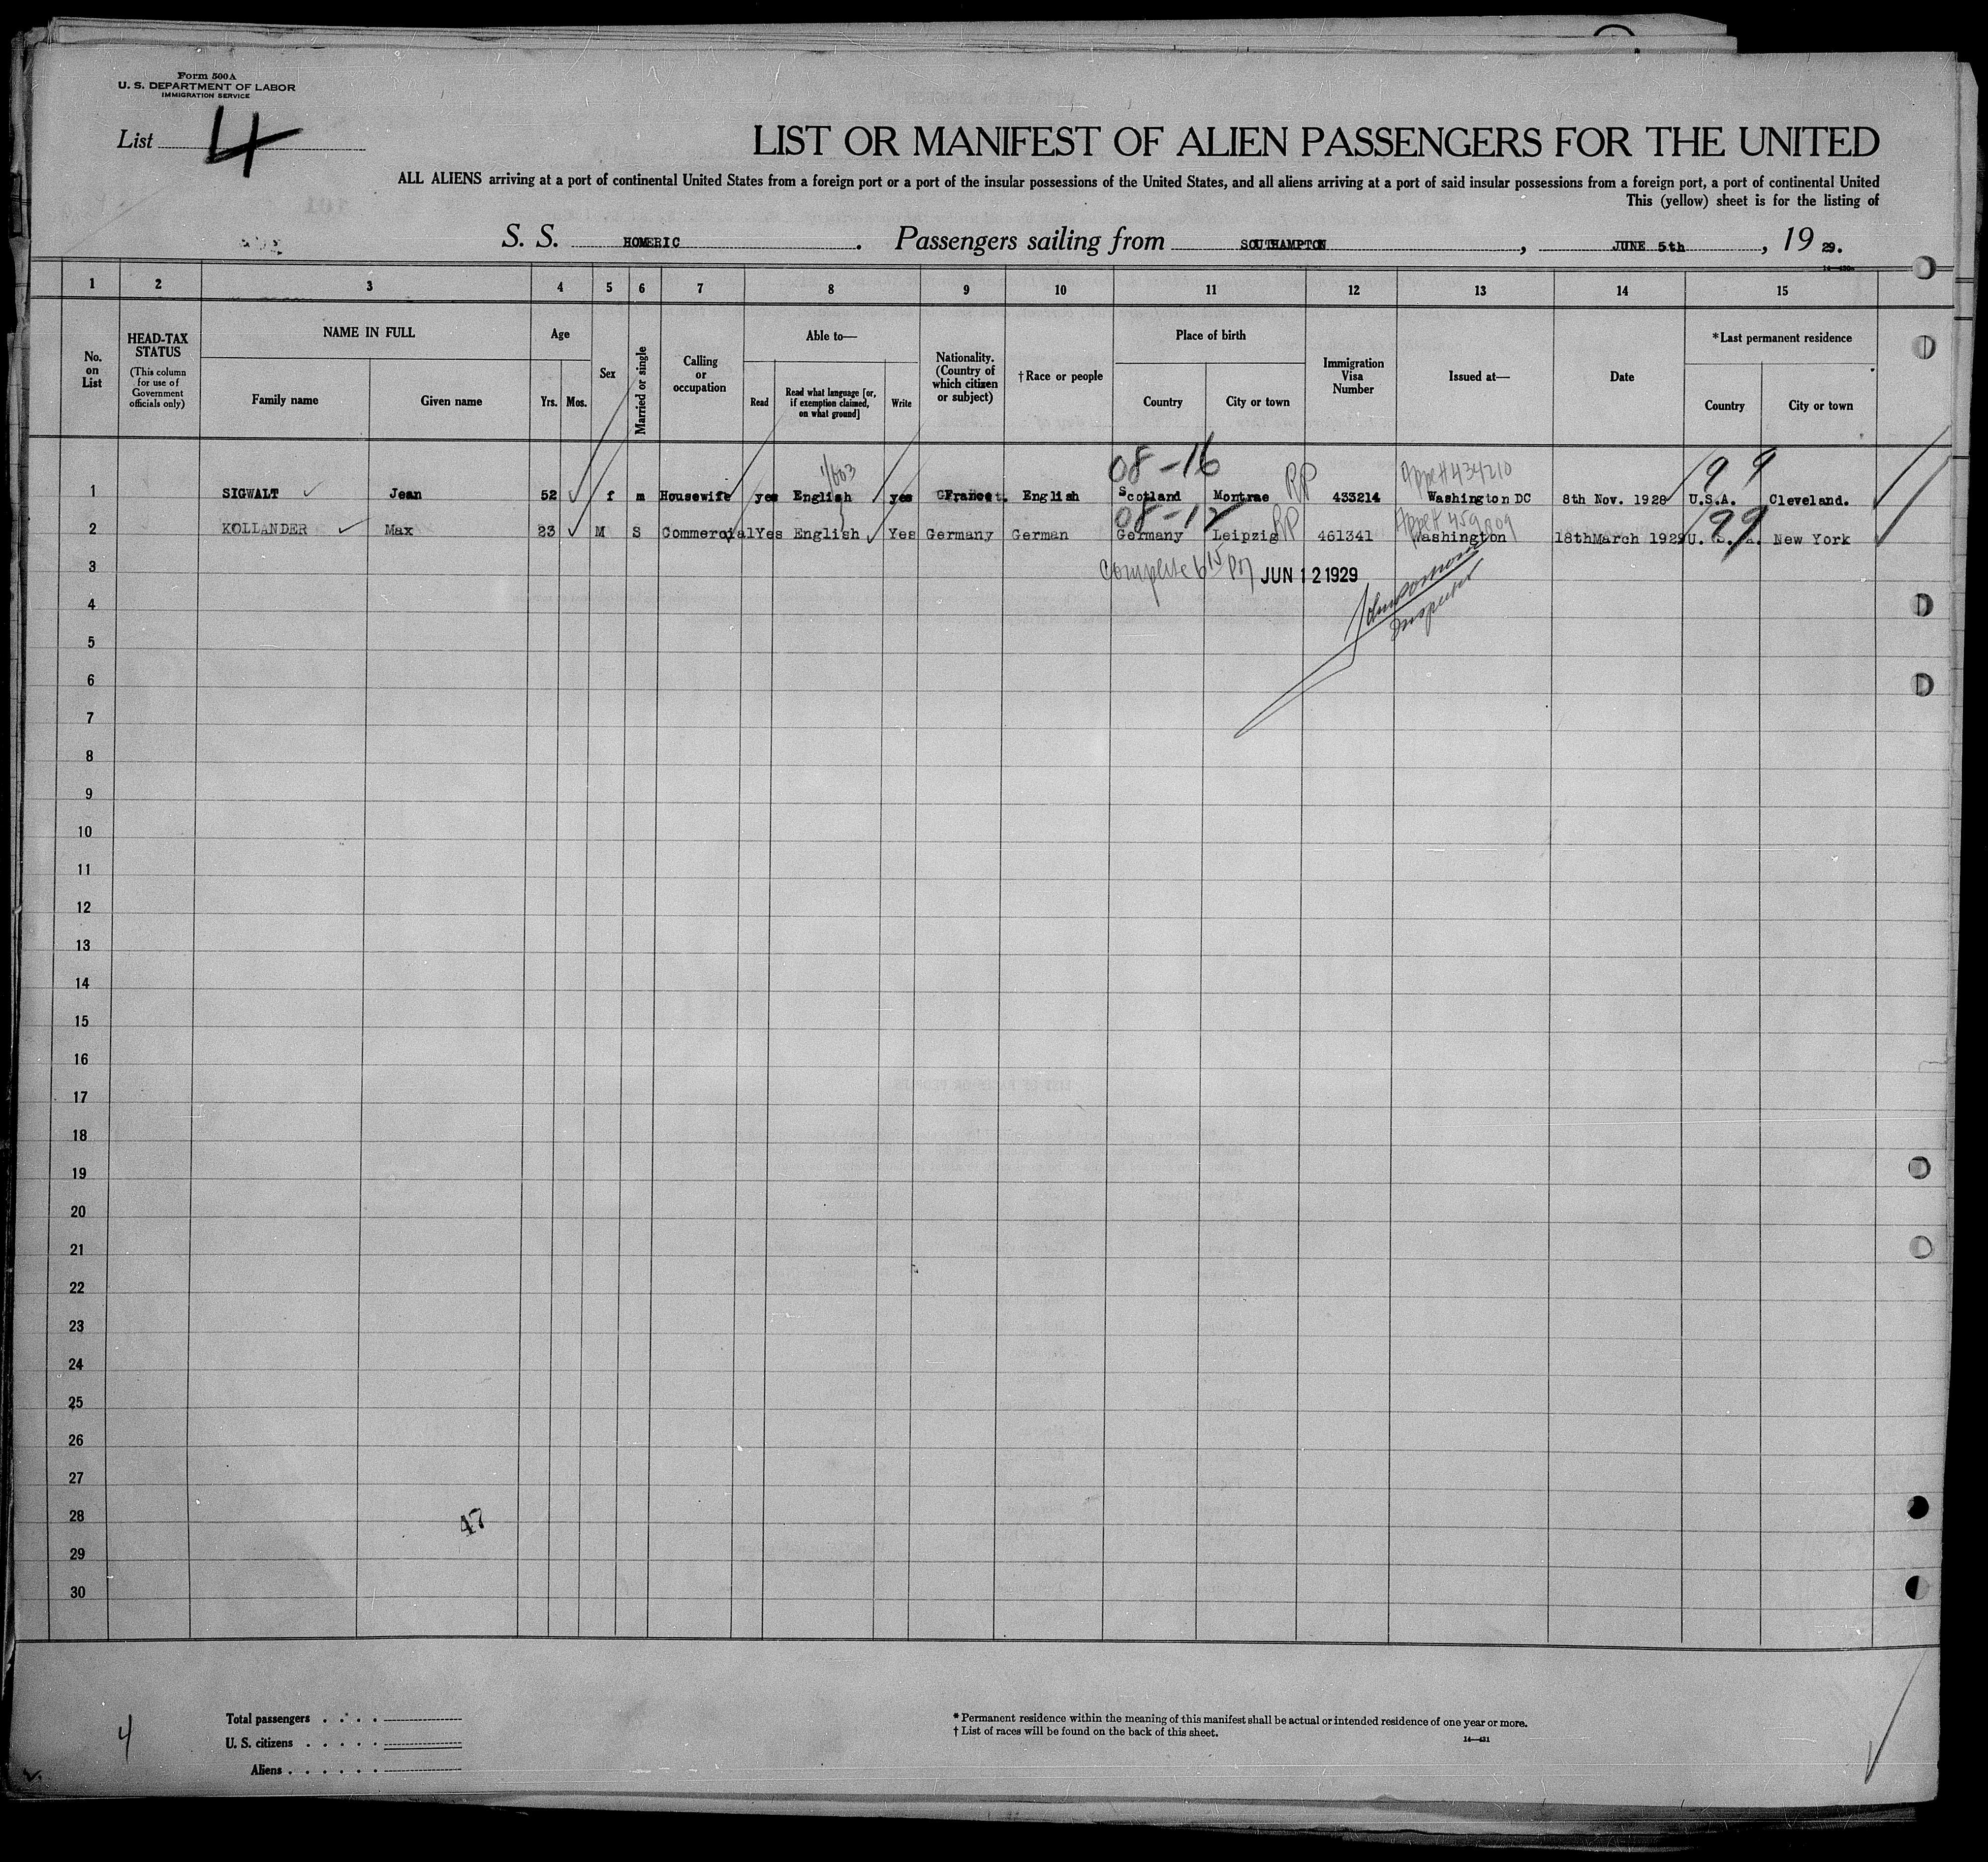 Form 500A
U. S. DEPARTMENT OF LABOR
IMMIGRATION SERVICE
List 4
LIST OR MANIFEST OF ALIEN PASSENGERS FOR THE UNITED
ALL ALIENS arriving at a port of continental United States from a foreign port or a port of the insular possessions of the United States, and all aliens arriving at a port of said insular possessions from a foreign port, a port of continental United
This (yellow) sheet is for the listing of
S. S. HOMERIC. Passengers sailing from SOUTHAMPTON, JUNE 5th, 19 29.
1 2 3 4 5 6 7 8 9 10 11 12 13 14 15
No. on List
HEAD-TAX STATUS
(This column for use of Government officials only)
NAME IN FULL
Family name
Given name
Age
Yrs.
Mos.
Sex
Married or single
Calling or occupation
Able to—
Read
Read what language [or, if exemption claimed, on what ground]
Write
Nationality. (Country of which citizen or subject)
†Race or people
Place of birth
Country
City or town
Immigration Visa Number
Issued at—
Date
*Last permanent residence
Country
City or town
08-16 RP 99
1 SIGWALT Jean 52 f m Housewife yes English yes France English Scotland Montrae 433214 Washington DC 8th Nov. 1928 U.S.A. Cleveland.
08-12 RP 99
2 KOLLANDER Max 23 M S Commercial Yes English Yes Germany German Germany Leipzig 461341 Washington 18thMarch 1929 U. S. A. New York
3 Complete 6 15 PM JUN 12 1929
4
Inspector
5
6
7
8
9
10
11
12
13
14
15
16
17
18
19
20
21
22
23
24
25
26
27
28 47
29
30
4
Total passengers
U. S. citizens
Aliens
* Permanent residence within the meaning of this manifest shall be actual or intended residence of one year or more.
† List of races will be found on the back of this sheet.
14—431